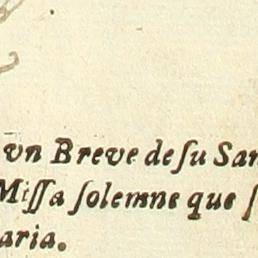 vn Breve de ſu San
Miſſa ſolemne que ſ
aria.